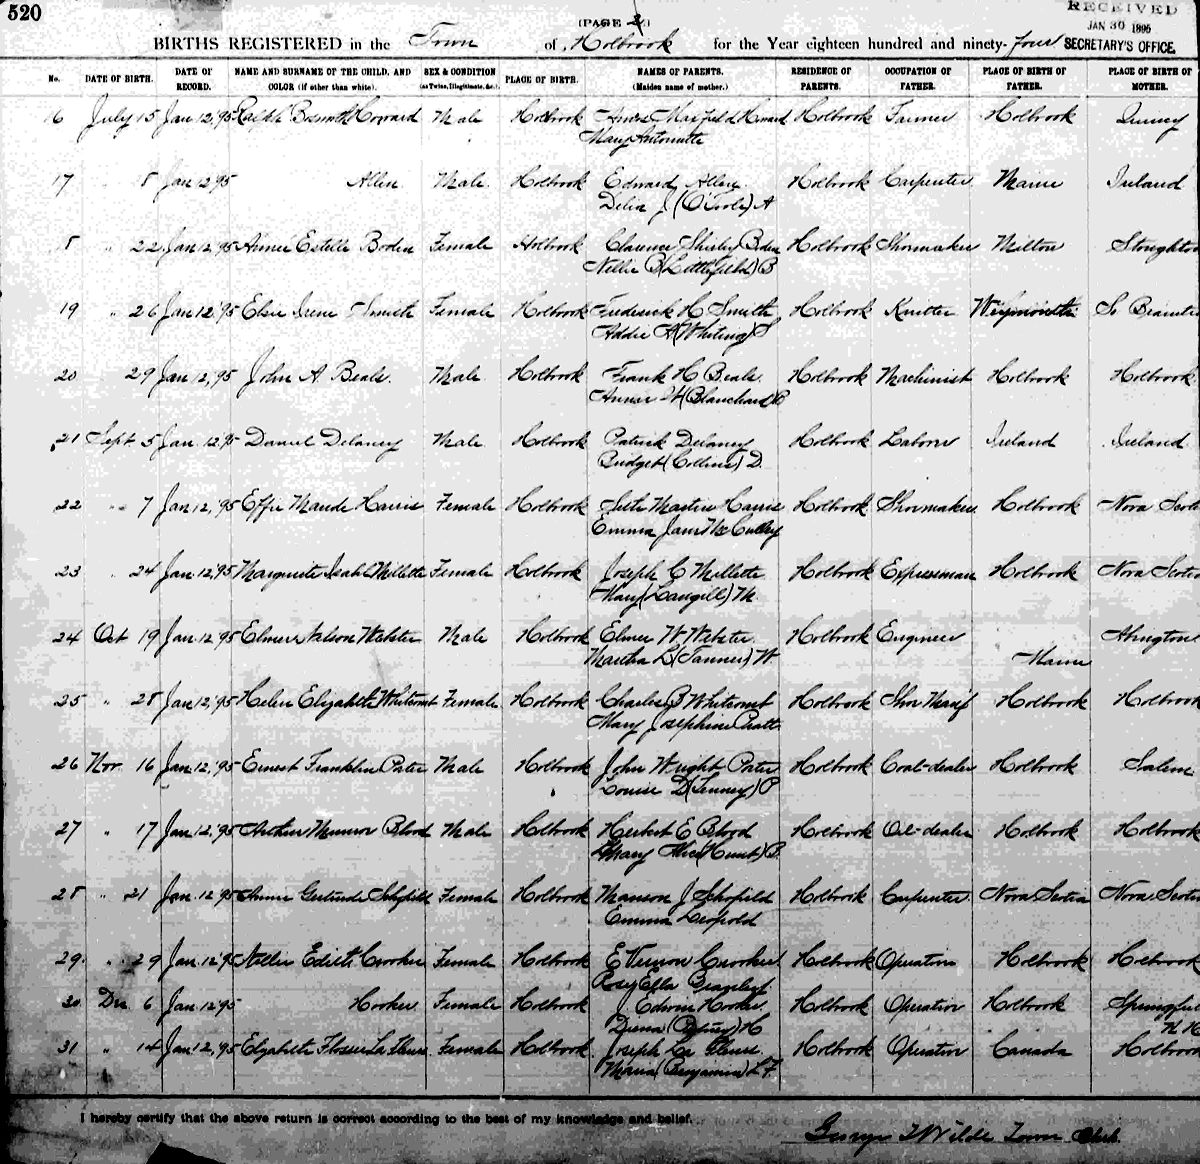 520
(PAGE 2.)
RECEIVED
JAN 30 1895
SECRETARY'S OFFICE.
BIRTHS REGISTERED in the Town of Holbrook for the Year eighteen hundred and ninety-four
No. DATE OF BIRTH. DATE OF RECORD. NAME AND SURNAME OF THE CHILD, AND COLOR (if other than white). SEX & CONDITION (as Twins, Illegitimate, &c.). PLACE OF BIRTH. NAMES OF PARENTS. (Maiden name of mother.) RESIDENCE OF PARENTS. OCCUPATION OF FATHER. PLACE OF BIRTH OF FATHER. PLACE OF BIRTH OF MOTHER.
16 July 15 Jan 12,'95 Ralph Howard Male Holbrook Amos Maxfield Howard Holbrook Farmer Holbrook Quincy
Mary Antoinette
17 " 18 Jan 12 95 Allen Male Holbrook Edward Allen Holbrook Carpenter Maine Ireland
Delia J (O'Toole) A
8 " 22 Jan 12,'95 Annie Estelle Boden Female Holbrook Clarence Shirley Boden Holbrook Shoemaker Milton Stoughton
Nellie B (Littlefield) B
19 " 26 Jan 12,'95 Elsie Irene Smith Female Holbrook Frederick H Smith Holbrook Knitter Weymouth So Braintr
Addie A (Whiting) S
20 29 Jan 12,'95 John A Beals. Male Holbrook Frank H Beals. Holbrook Machinist Holbrook Holbrook
Annie H (Blanchard) B
21 Sept 5 Jan. 12.95 Daniel Delaney Male Holbrook Patrick Delaney Holbrook Laborer Ireland Ireland
Bridget (Collins) D.
22 " 7 Jan 12,'95 Effie Maude Harris Female Holbrook Seth Martin Harris Holbrook Shoemaker Holbrook Nova Scoti
Emma Jane McCulley
23 " 24 Jan 12,'95 Marguerite Isabel Millette Female Holbrook Joseph C Millette Holbrook Expressman Holbrook Nova Scotia
Mary (Langill) M.
24 Oct 19 Jan. 12.95 Elmer Nelson Webster Male Holbrook Elmer W Webster Holbrook Engineer Maine Abington
Martha L (Tanner) W.
25 " 28 Jan 12,'95 Helen Elizabeth Whitcomb Female Holbrook Charles B Whitcomb Holbrook Shoe Manf Holbrook Holbrook
Mary Josephine Pratt
26 Nov. 16 Jan. 12,'95 Ernest Franklin Porter Male Holbrook John Wright Porter Holbrook Coal-dealer Holbrook Salem
Louise D (Tenney) P
27 " 17 Jan 12,'95 Arthur Munroe Blood Male Holbrook Herbert E Blood Holbrook Oil-dealer Holbrook Holbrook
Mary Alice (Hunt) B.
28 " 21 Jan. 12'95 Annie Gertrude Schofield Female Holbrook Manson J Schofield Holbrook Carpenter Nova Scotia Nova Scotia
Emma Leopold
29. " 29 Jan. 12'95 Nellie Edith Crooker Female Holbrook E Vernon Crooker Holbrook Operative Holbrook Holbrook
Rosy Ella
30 Dec. 6 Jan 12'95 Hooker Female Holbrook J Edwin Hooker Holbrook Operator Holbrook Springfiel
N.H
31 " 14 Jan 12,'95 Elizabeth Flossie La Fleur Female Holbrook Joseph La Fleur Holbrook Operator Canada Holbrook
Maria (Benjamin) L F.
I hereby certify that the above return is correct according to the best of my knowledge and belief.
George T Wilde Town Clerk.